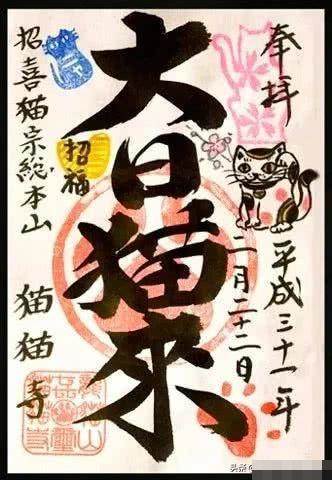 奉拝
平成三十一年
二月二十二日
大日猫来
招福
招喜猫宗総本山
猫猫寺